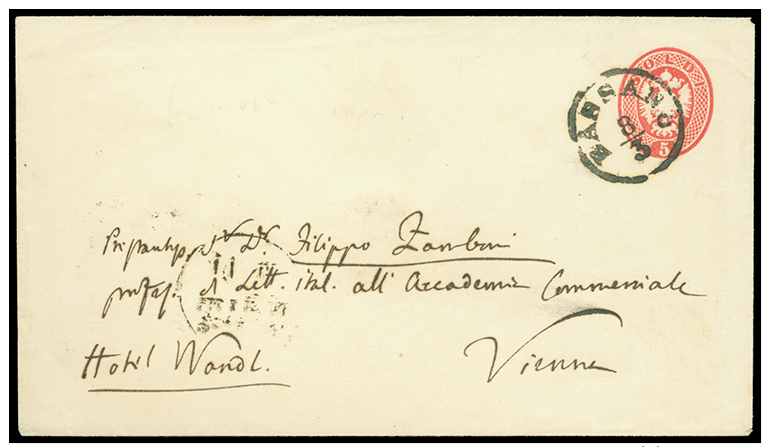 SOLDI
5
BASSANO
8/3
Sr. Dr. Filippo Zamboni
profess. di Lett. ital. all' Accademia Commerciale
Hotel Wandl.
Vienna